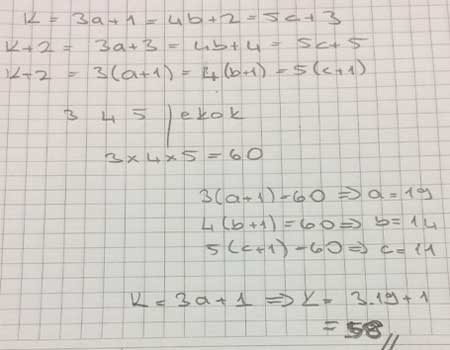 K = 3a+1 = 4b+2 = 5c+3
K+2 = 3a+3 = 4b+4 = 5c+5
K+2 = 3(a+1) = 4(b+1) = 5(c+1)
3 4 5 | ekok
3×4×5 = 60
3(a+1)-60 => a=19
4(b+1)=60 => b=14
5(c+1)-60 => c=11
K = 3a+1 => K = 3.19+1
= 58//